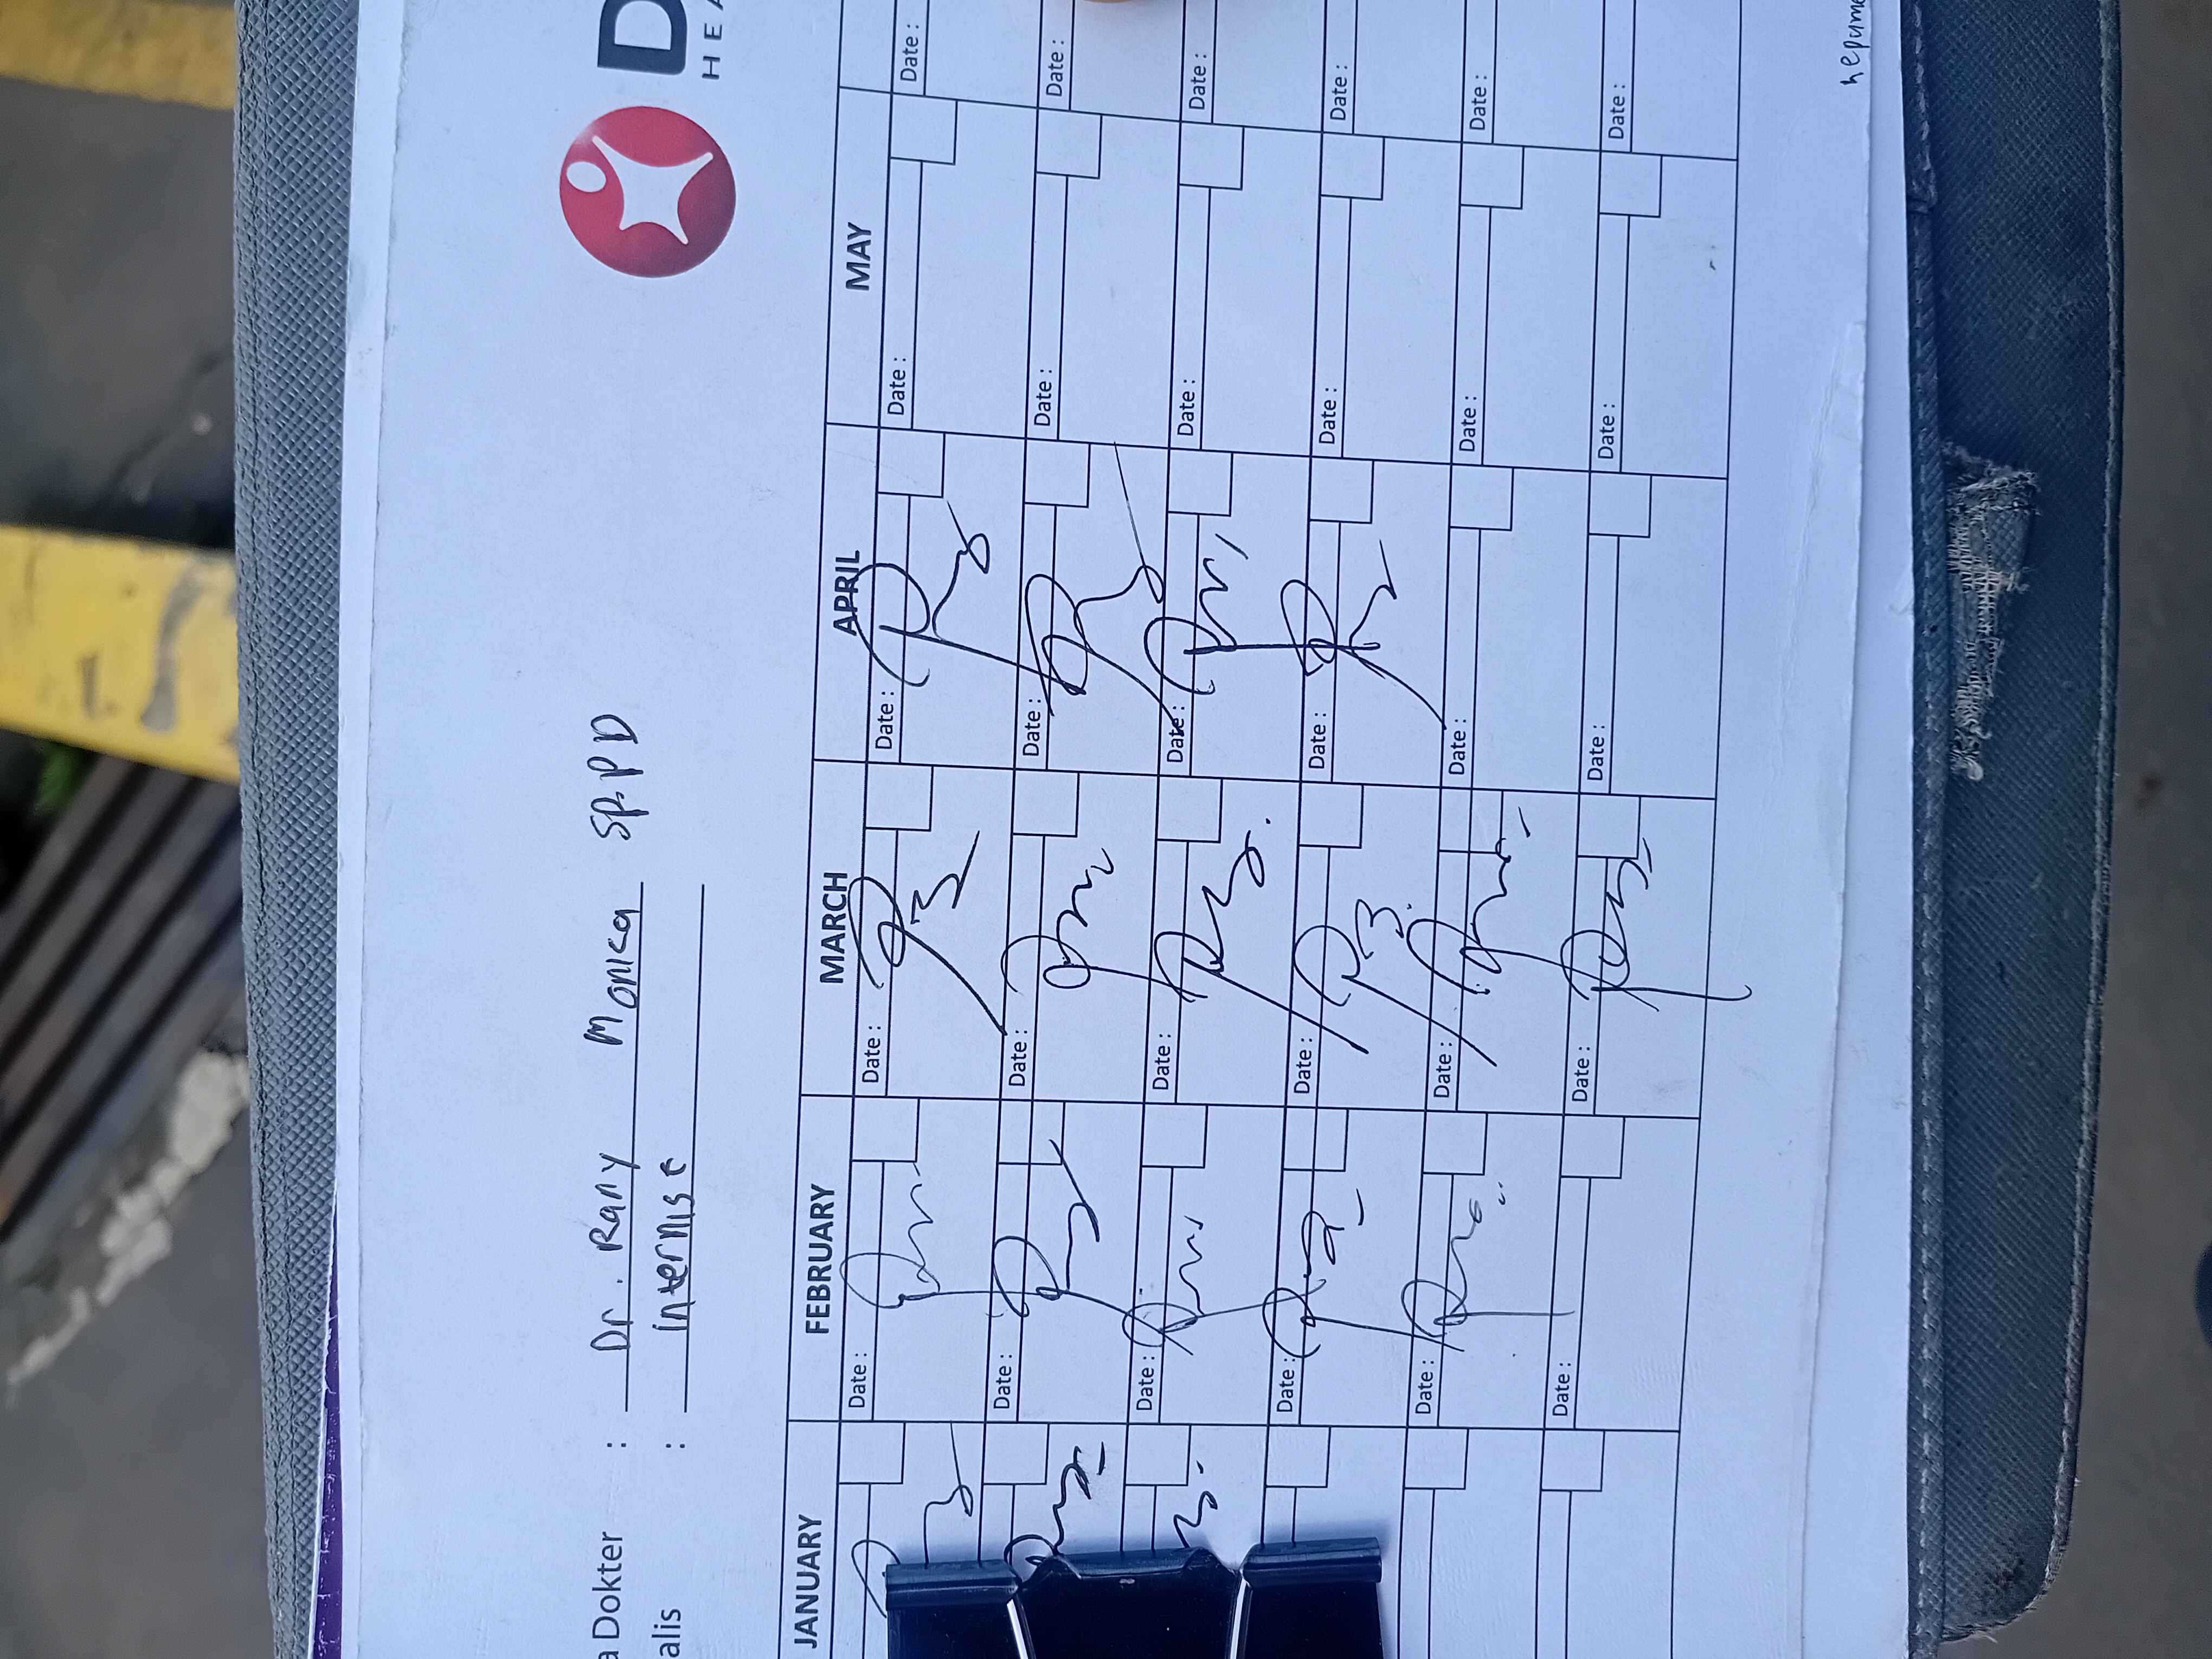 D
HEA
a Dokter : Dr. Rany Monica SP.PD
alis : internist
JANUARY FEBRUARY MARCH APRIL MAY
Date : Date : Date : Date : Date :
Date : Date : Date : Date : Date :
Date : Date : Date : Date : Date :
Date : Date : Date : Date : Date :
Date : Date : Date : Date : Date :
Date : Date : Date : Date : Date :